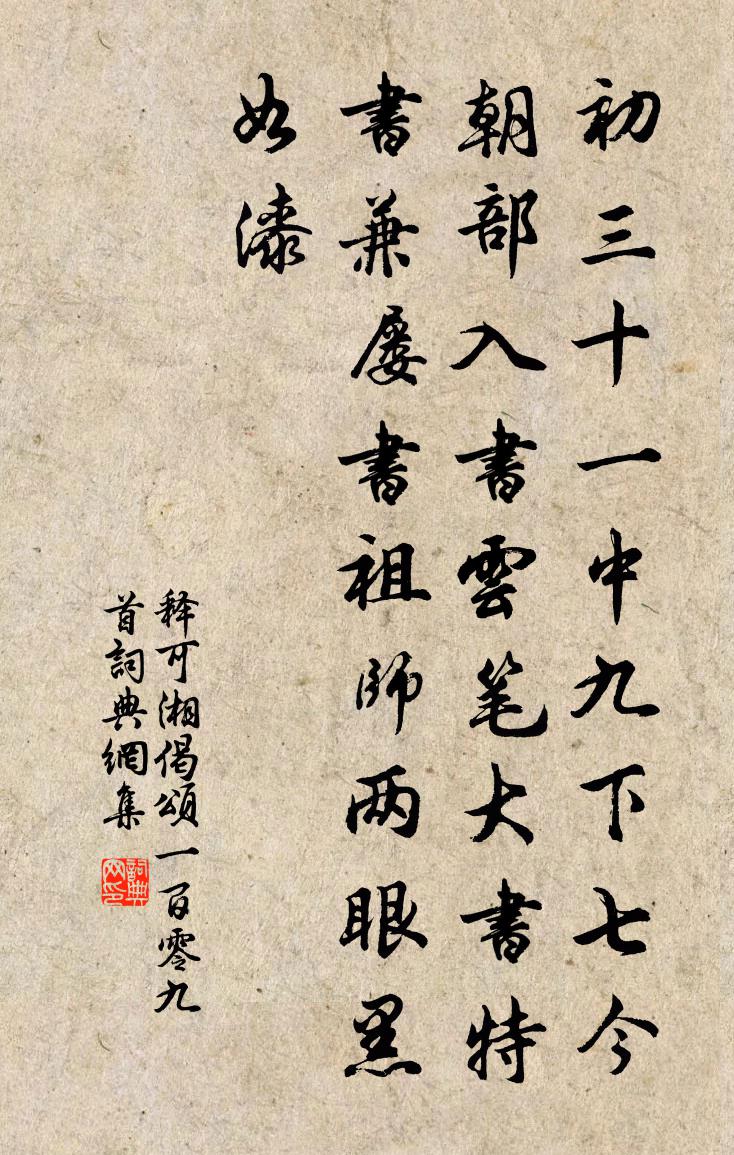 初三十一中九下七今
朝部入書雲笔大書特
書兼屡書祖師两眼黑
如漆
释可湘偈頌一百零九
首詞典網集
詞典网印